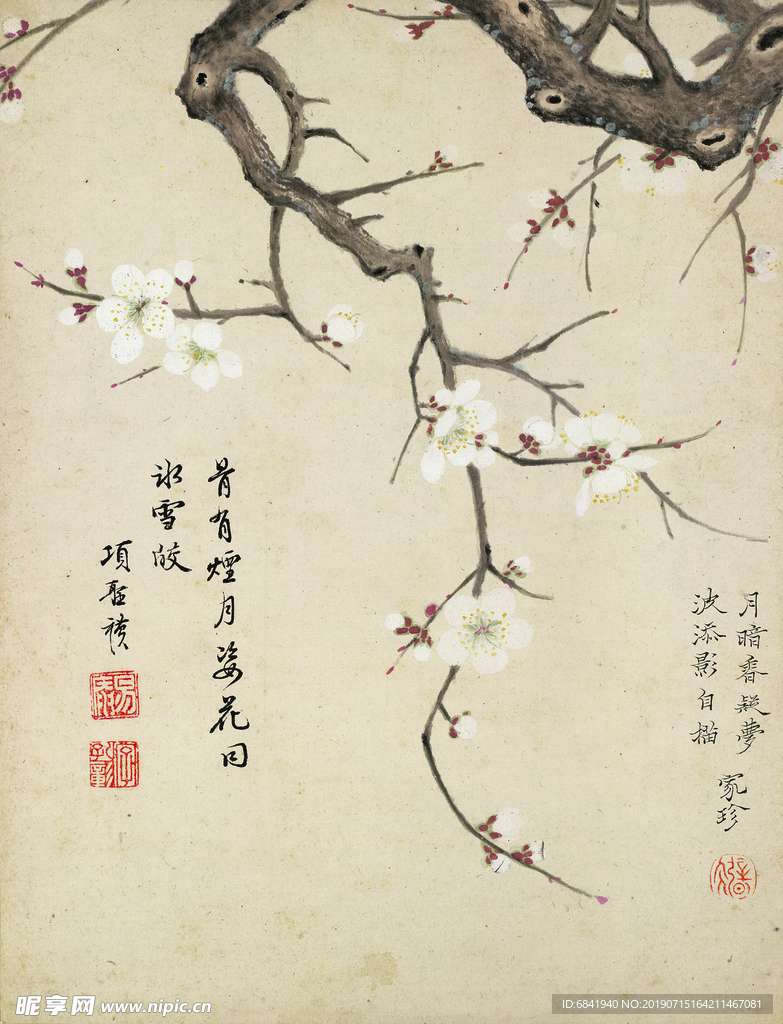 月暗香凝夢
波添影自描
家珍
骨有煙月姿花同
冰雪皎
項聖謨
昵享网 www.nipic.cn
ID:6841940 NO:20190715164211467081